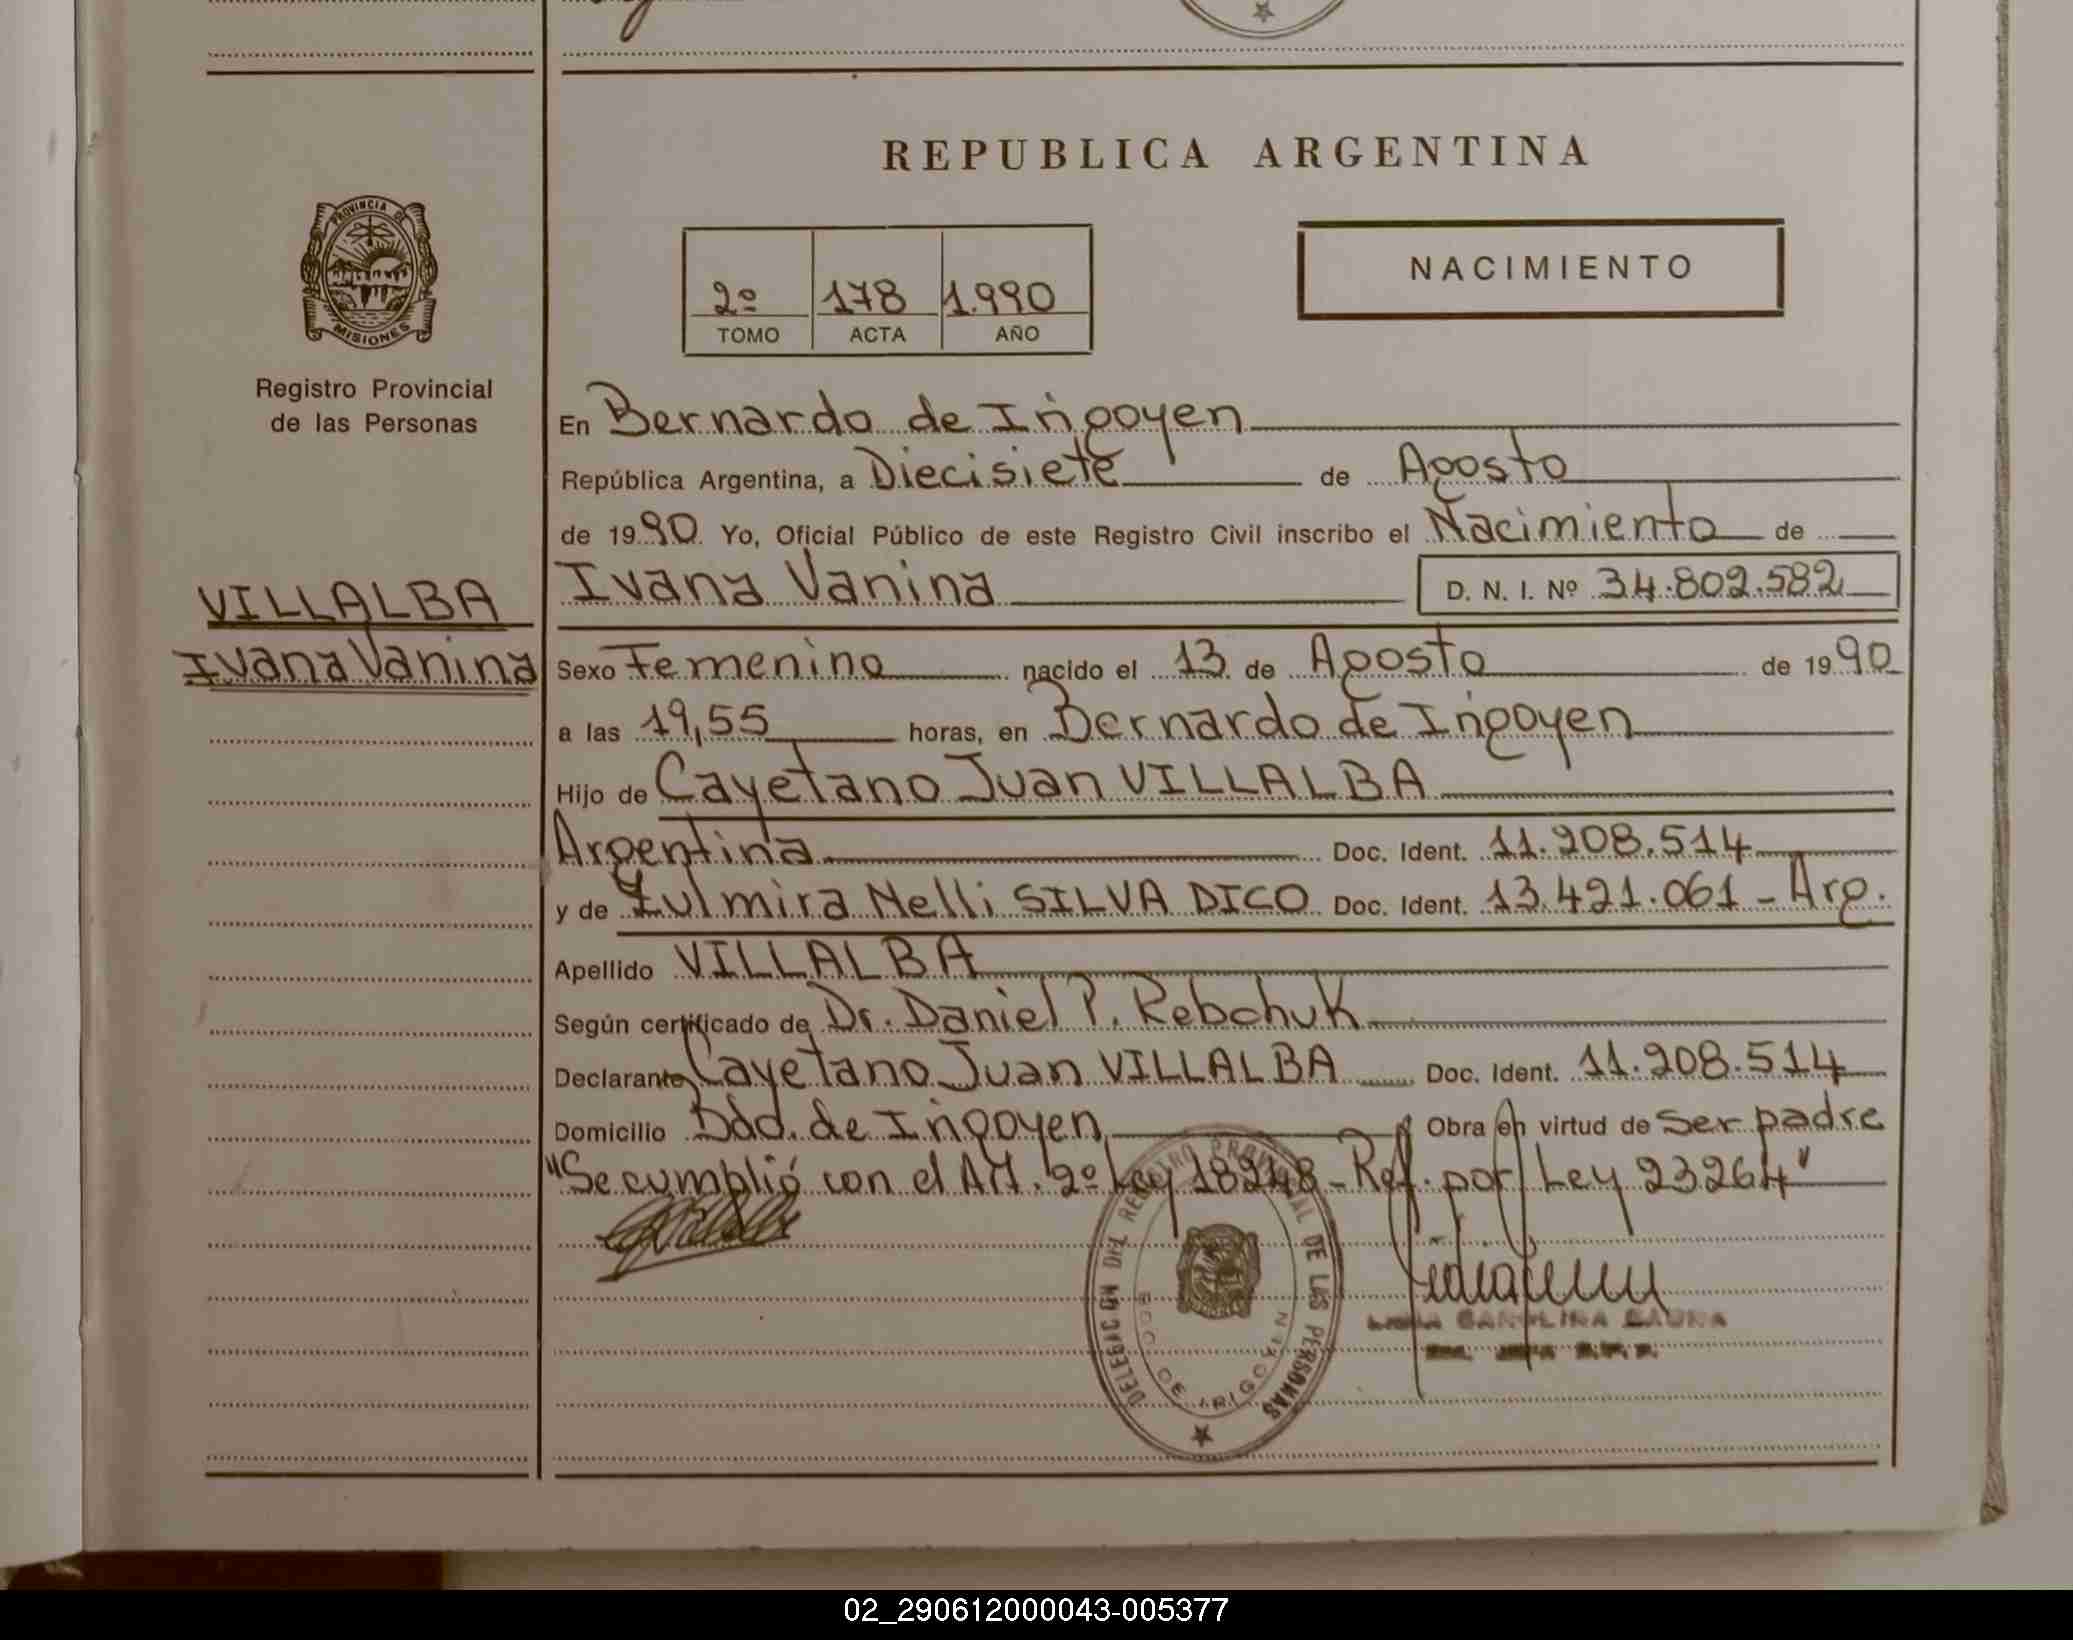 REPUBLICA ARGENTINA
PROVINCIA DE
MISIONES
Registro Provincial
de las Personas
2º 178 1.990
TOMO ACTA AÑO
NACIMIENTO
En Bernardo de Irigoyen
República Argentina, a Diecisiete de Agosto
de 1990 Yo, Oficial Público de este Registro Civil inscribo el Nacimiento de
VILLALBA
Ivana Vanina
Ivana Vanina D. N. I. Nº 34.802.582
Sexo Femenino nacido el 13 de Agosto de 1990
a las 19,55 horas, en Bernardo de Irigoyen
Hijo de Cayetano Juan VILLALBA
Argentina Doc. Ident. 11.208.514
y de Zulmira Nelli SILVA DICO Doc. Ident. 13.421.061 - Arg.
Apellido VILLALBA
Según certificado de Dr. Daniel P. Rebchuk
Declarante Cayetano Juan VILLALBA Doc. Ident. 11.208.514
Domicilio Bdo. de Irigoyen Obra en virtud de ser padre
"Se cumplió con el Art. 2º Ley 18248 - Ref. por Ley 23264"
DELEGACION DEL REGISTRO PROVINCIAL DE LAS PERSONAS
BDO. DE IRIGOYEN
CAROLINA
02_290612000043-005377